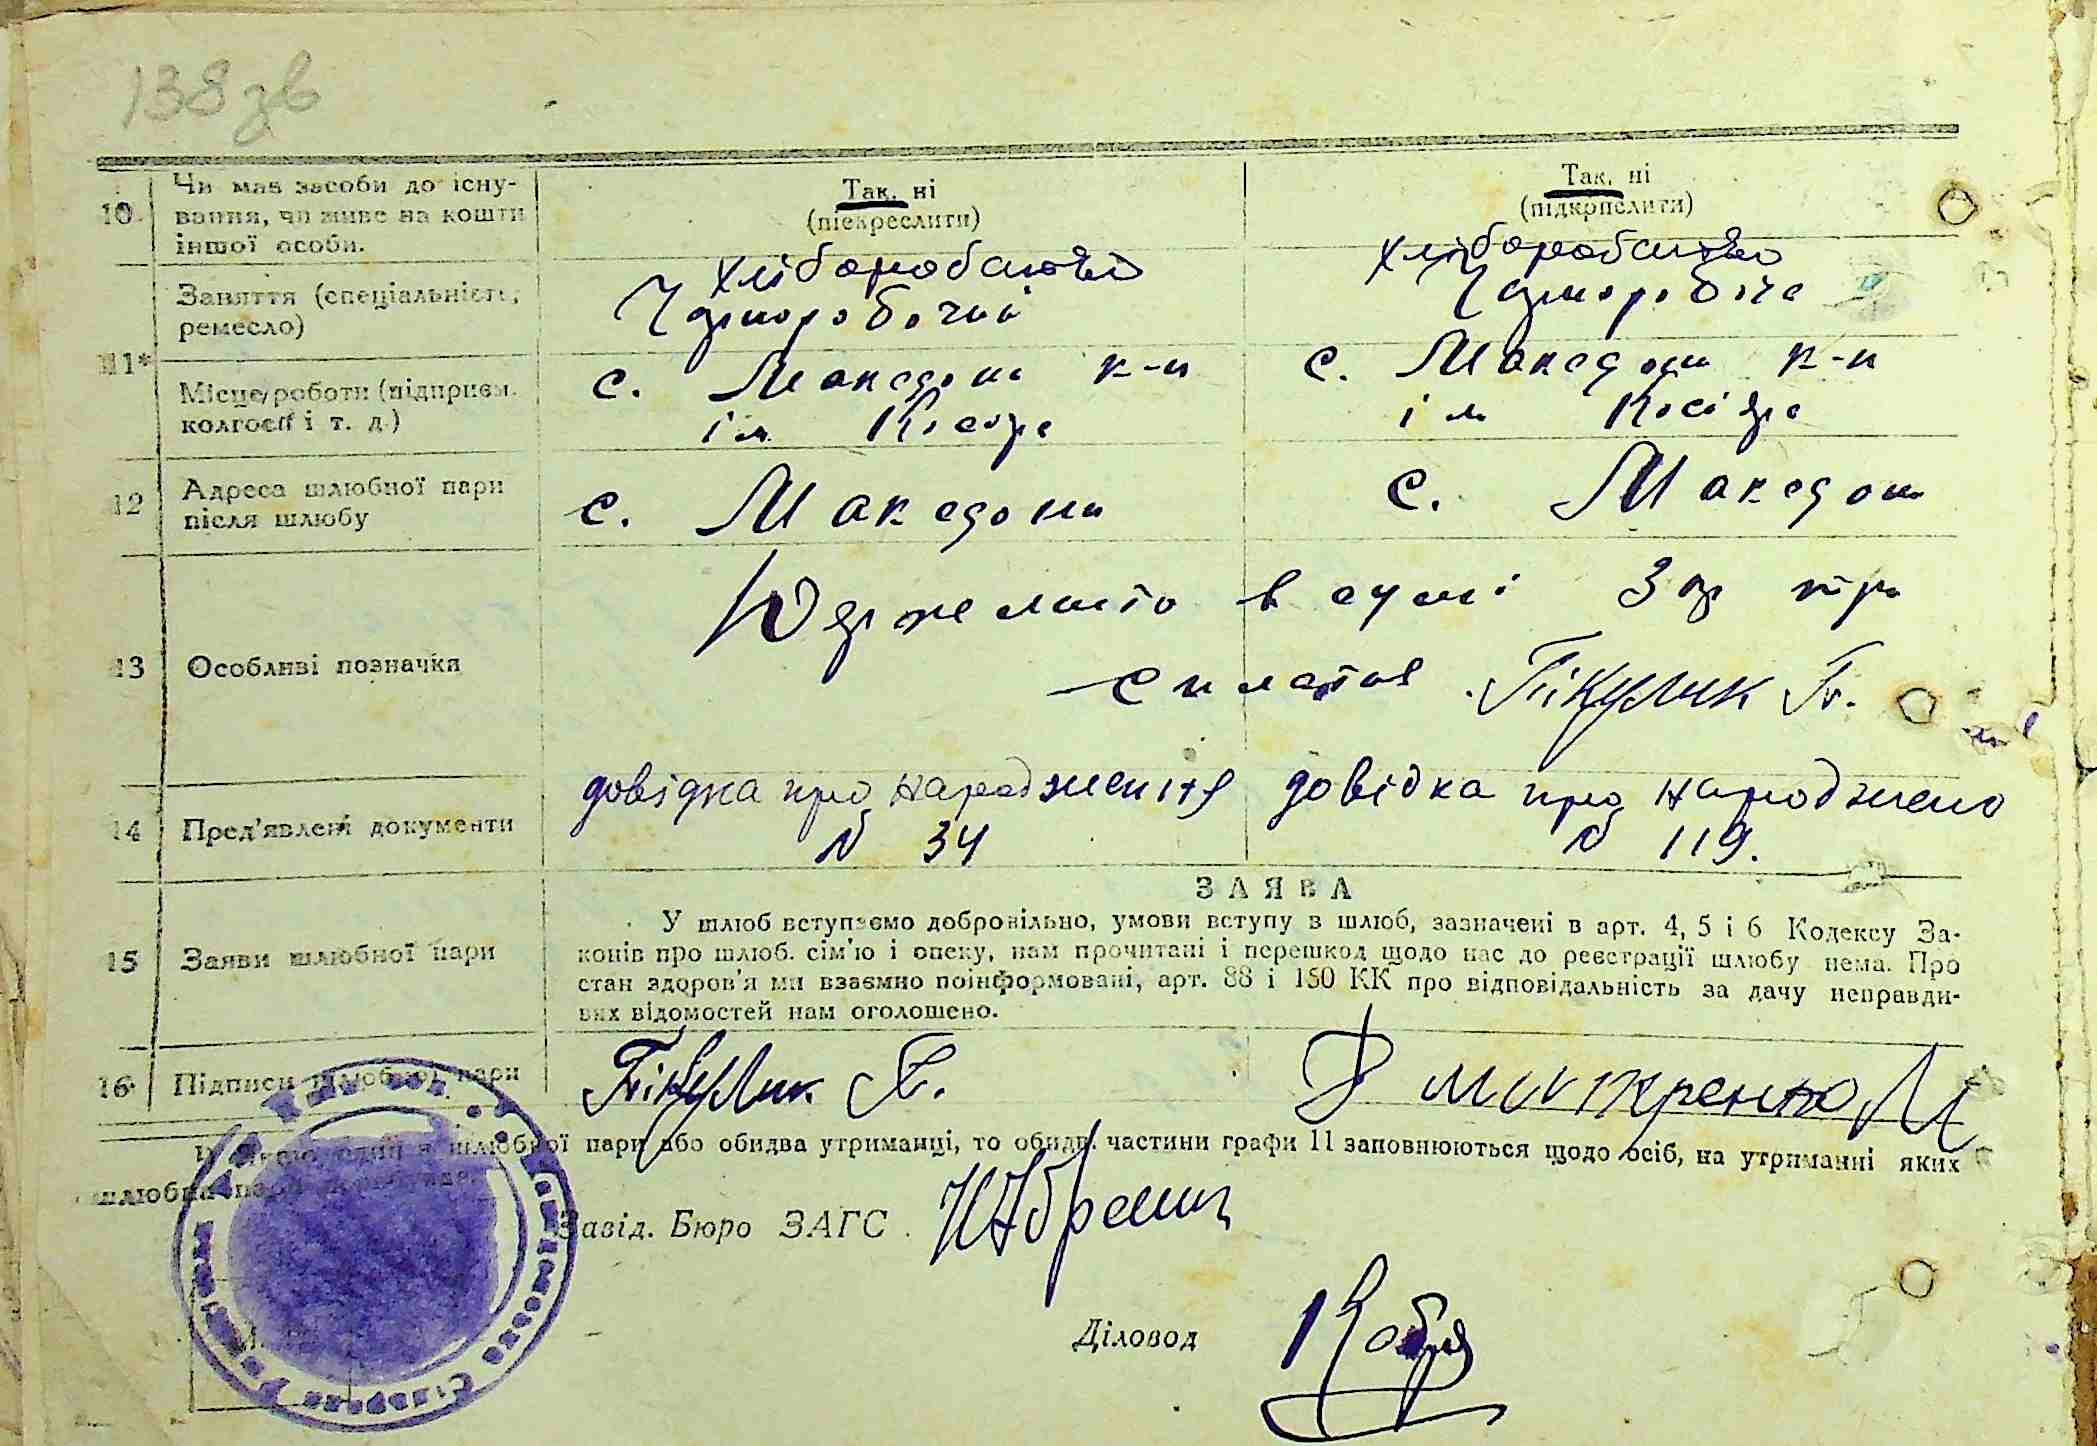 138 зв
10 Чи має засоби до існу-
вання, чи живе на кошти
іншої особи.
Так, ні
(підкреслити)
Так, ні
(підкрислити)
11*
Заняття (спеціальність,
ремесло)
хліборобство
Чорноробочий
хліборобство
Чорноробоча
Місце роботи (підприєм.
колгосп і т. д.)
с. Македони к-п
ім Косіора
с. Македони к-п
ім Косіора
12 Адреса шлюбної пари
після шлюбу
с. Македони
с. Македони
13 Особливі позначки
Держмито в сумі 3 кр
сплатив Пікулик П.
14 Пред'явлені документи
довідка про народження
№ 34
довідка про народжено
№ 119.
15 Заяви шлюбної пари
ЗАЯВА
У шлюб вступаємо добровільно, умови вступу в шлюб, зазначені в арт. 4, 5 і 6 Кодексу За-
конів про шлюб. сім'ю і опеку, нам прочитані і перешкод щодо нас до реєстрації шлюбу нема. Про
стан здоров'я ми взаємно поінформовані, арт. 88 і 150 КК про відповідальність за дачу неправди-
вих відомостей нам оголошено.
16 Підписи шлюбної пари
Пікулик П.
Дмитренко М
один з шлюбної пари або обидва утриманці, то обидві частини графи 11 заповнюються щодо осіб, на утриманні яких
шлюбна пара
Завід. Бюро ЗАГС
Діловод